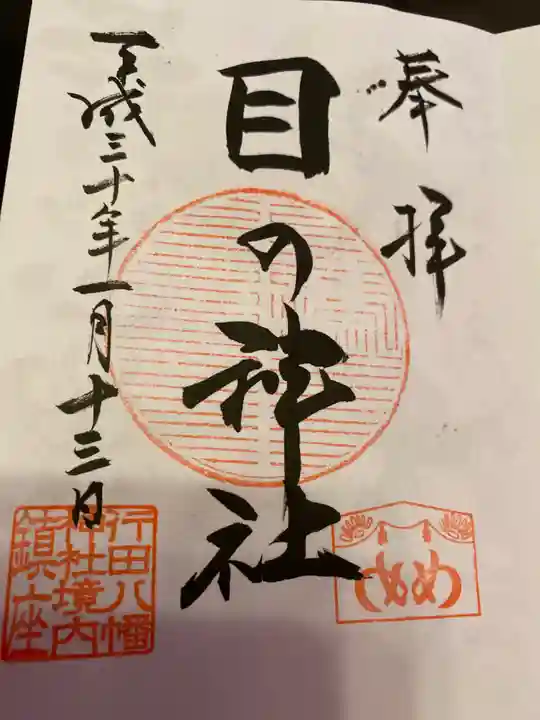 奉拝
目の神社
平成三十年一月十三日
行田八幡
神社境内
鎮座
め